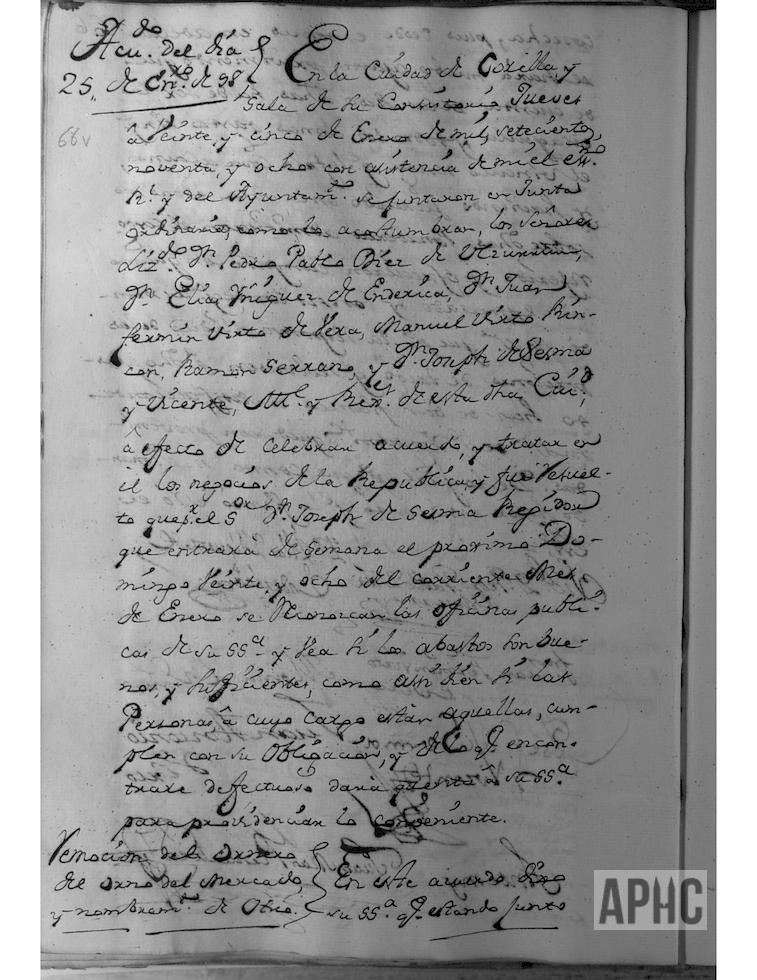 Acu.do del día
25, de En.ro de 98
66v
En la Ciudad de Corella, y
Sala de su Consistorio Jueves
â Veinte, y cinco de Enero de mil, setecientos,
noventa, y ocho con asistencia de mi el Ess.no
R.l y del Ayuntam.to se juntaron en Junta
ordinaria, como lo acostumbran, los Señores
Liz.do D.n Pedro Pablo Diez de Ulzurrun,
D.n Elias Yñiguez de Enderica, D.n Juan
fermin Virto de Vera, Manuel Virto Rin-
con, Ramon Serrano, y D.n Joseph de Sesma
y Vicente, All.e y Rex.res de esta dha Ciu.d,
â efecto de celebrar acuerdo, y tratar en
él los negocios de la Republica, y fue Resuel-
to que p.r el S.or D.n Joseph de Sesma Regidor
que entrará de Semana el proximo Do-
mingo Veinte, y ocho del corriente Mes
de Enero se Reconozcan las oficinas publi-
cas de su SS.a y Vea si los abastos son bue-
nos, y suficientes, como asi bien si las
Personas â cuyo cargo están aquellas, cum-
plen con su Obligacion, y de lo q.e encon-
trare defectuoso dará quenta â su SS.a
para providenciar lo conveniente.
Remocion del ornero
del orno del Mercado,
y nombram.to de Otro.
En este acuerdo dixo
su SS.a q.e estando junto
APHC